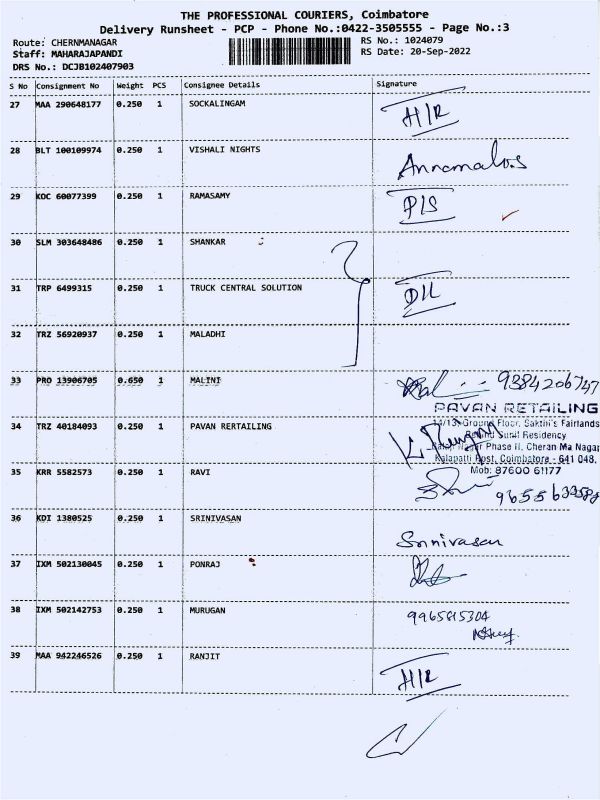 THE PROFESSIONAL COURIERS, Coimbatore
Delivery Runsheet - PCP - Phone No.:0422-3505555 - Page No.:3
Route: CHERNMANAGAR RS No.: 1024079
Staff: MAHARAJAPANDI RS Date: 20-Sep-2022
DRS No.: DCJB102407903
S No Consignment No Weight PCS Consignee Details Signature
27 MAA 290648177 0.250 1 SOCKALINGAM H/R
28 BLT 100109974 0.250 1 VISHALI NIGHTS
29 KOC 60077399 0.250 1 RAMASAMY P/S
30 SLM 303648486 0.250 1 SHANKAR
31 TRP 6499315 0.250 1 TRUCK CENTRAL SOLUTION D/L
32 TRZ 56920937 0.250 1 MALADHI
33 PRO 13906705 0.650 1 MALINI 9384206747
PAVAN RETAILING
14/13, Ground Floor, Sakthi's Fairlands
34 TRZ 40184093 0.250 1 PAVAN RERTAILING Behind Sunit Residency
Phase II, Cheran Ma Nagar
Kalapatti Post, Coimbatore - 641 048.
35 KRR 5582573 0.250 1 RAVI Mob: 87600 61177
36 KDI 1380525 0.250 1 SRINIVASAN Srinivasan
37 IXM 502130045 0.250 1 PONRAJ
38 IXM 502142753 0.250 1 MURUGAN 9965815304
39 MAA 942246526 0.250 1 RANJIT H/R